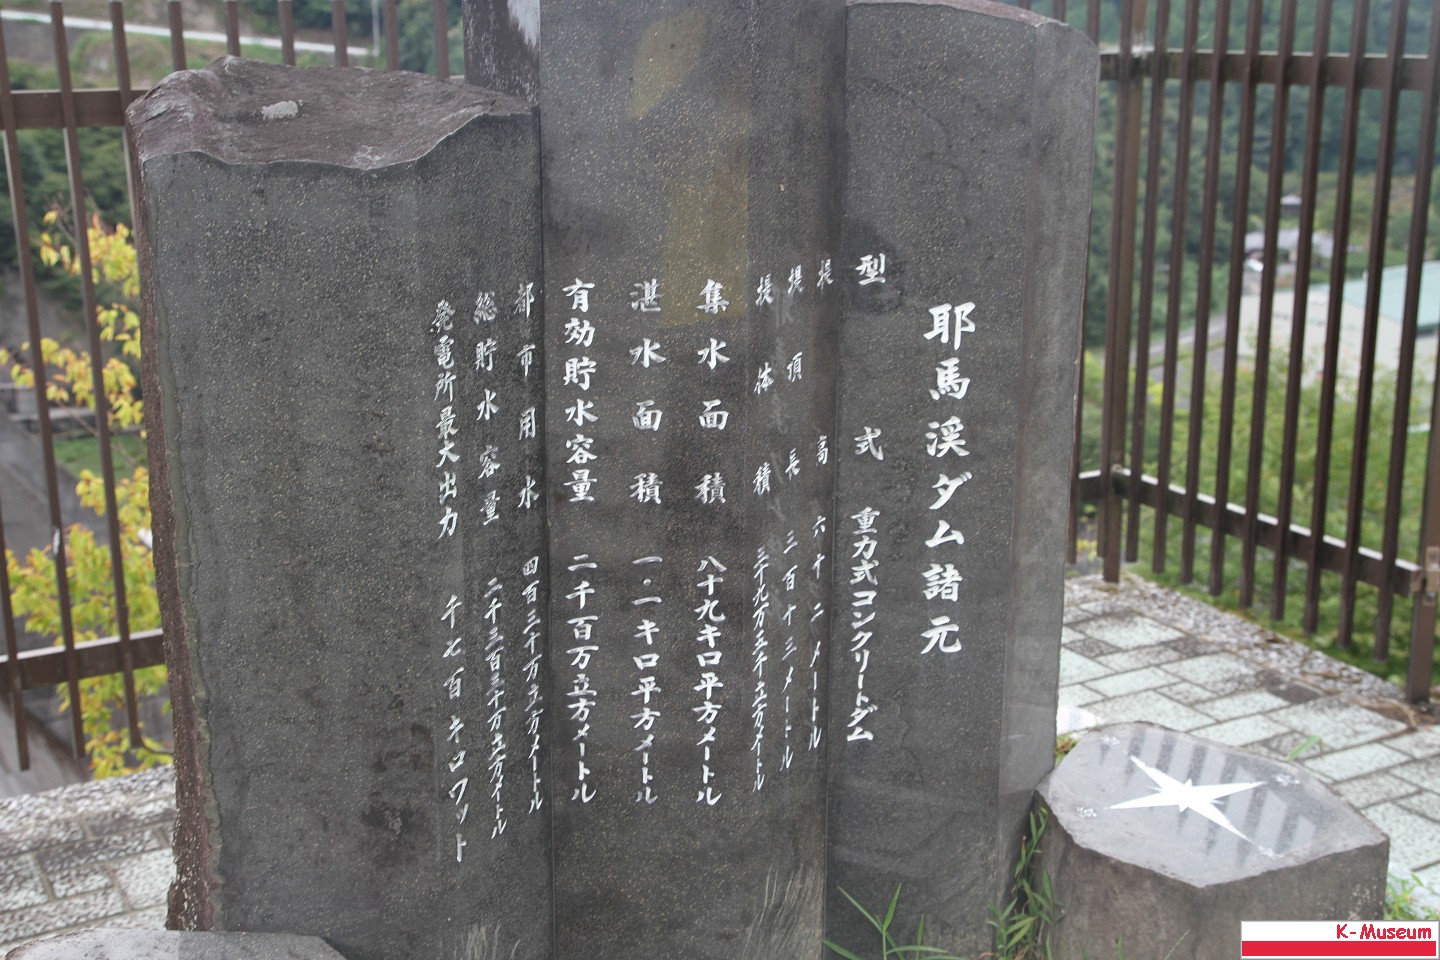 耶馬渓ダム諸元
型式 重力式コンクリートダム
堤高 六十二メートル
堤頂長 三百十三メートル
堤体積 三十九万三千立方メートル
集水面積 八十九キロ平方メートル
湛水面積 一・一キロ平方メートル
有効貯水容量 二千百万立方メートル
都市用水 四百三十万立方メートル
総貯水容量 二千三百三十万立方メートル
発電所最大出力 千七百キロワット
K-Museum